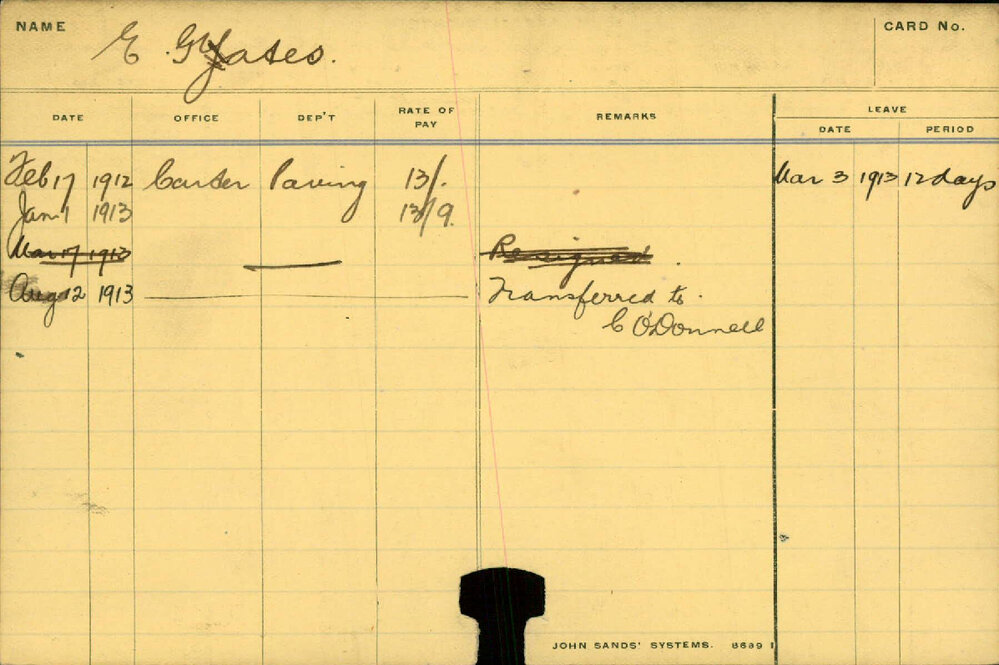 NAME E Yates. CARD No.
DATE OFFICE DEP'T RATE OF PAY REMARKS LEAVE
DATE PERIOD
Feb 17 1912 Carter Paving 13/. Mar 3 1913 12 days
Jan 1 1913 13/9.
Mar 17 1913 Resigned
Aug 12 1913 Transferred to
C O'Donnell
JOHN SANDS' SYSTEMS.